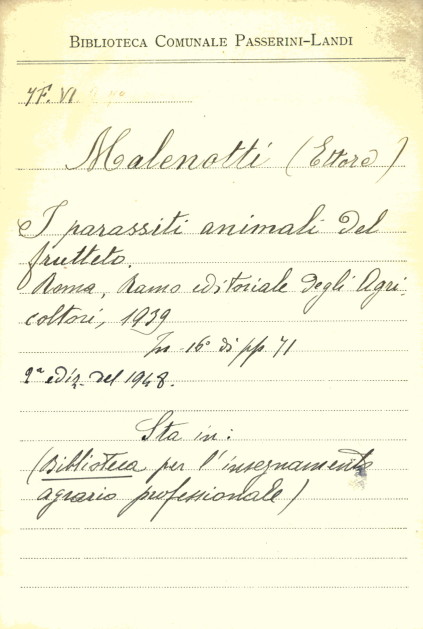 BIBLIOTECA COMUNALE PASSERINI-LANDI
7F. VI
Malenotti (Ettore)
I parassiti animali del
frutteto.
Roma, Ramo editoriale degli Agri-
coltori, 1939
In 16° di pp. 71
2ª ediz. del 1948.
Sta in:
(Biblioteca per l'insegnamento
agrario professionale)